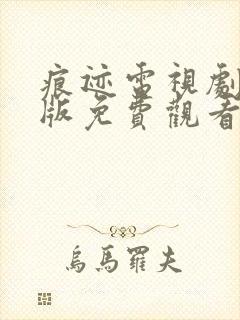 痕迹電視劇
版免費觀看
烏馬羅夫